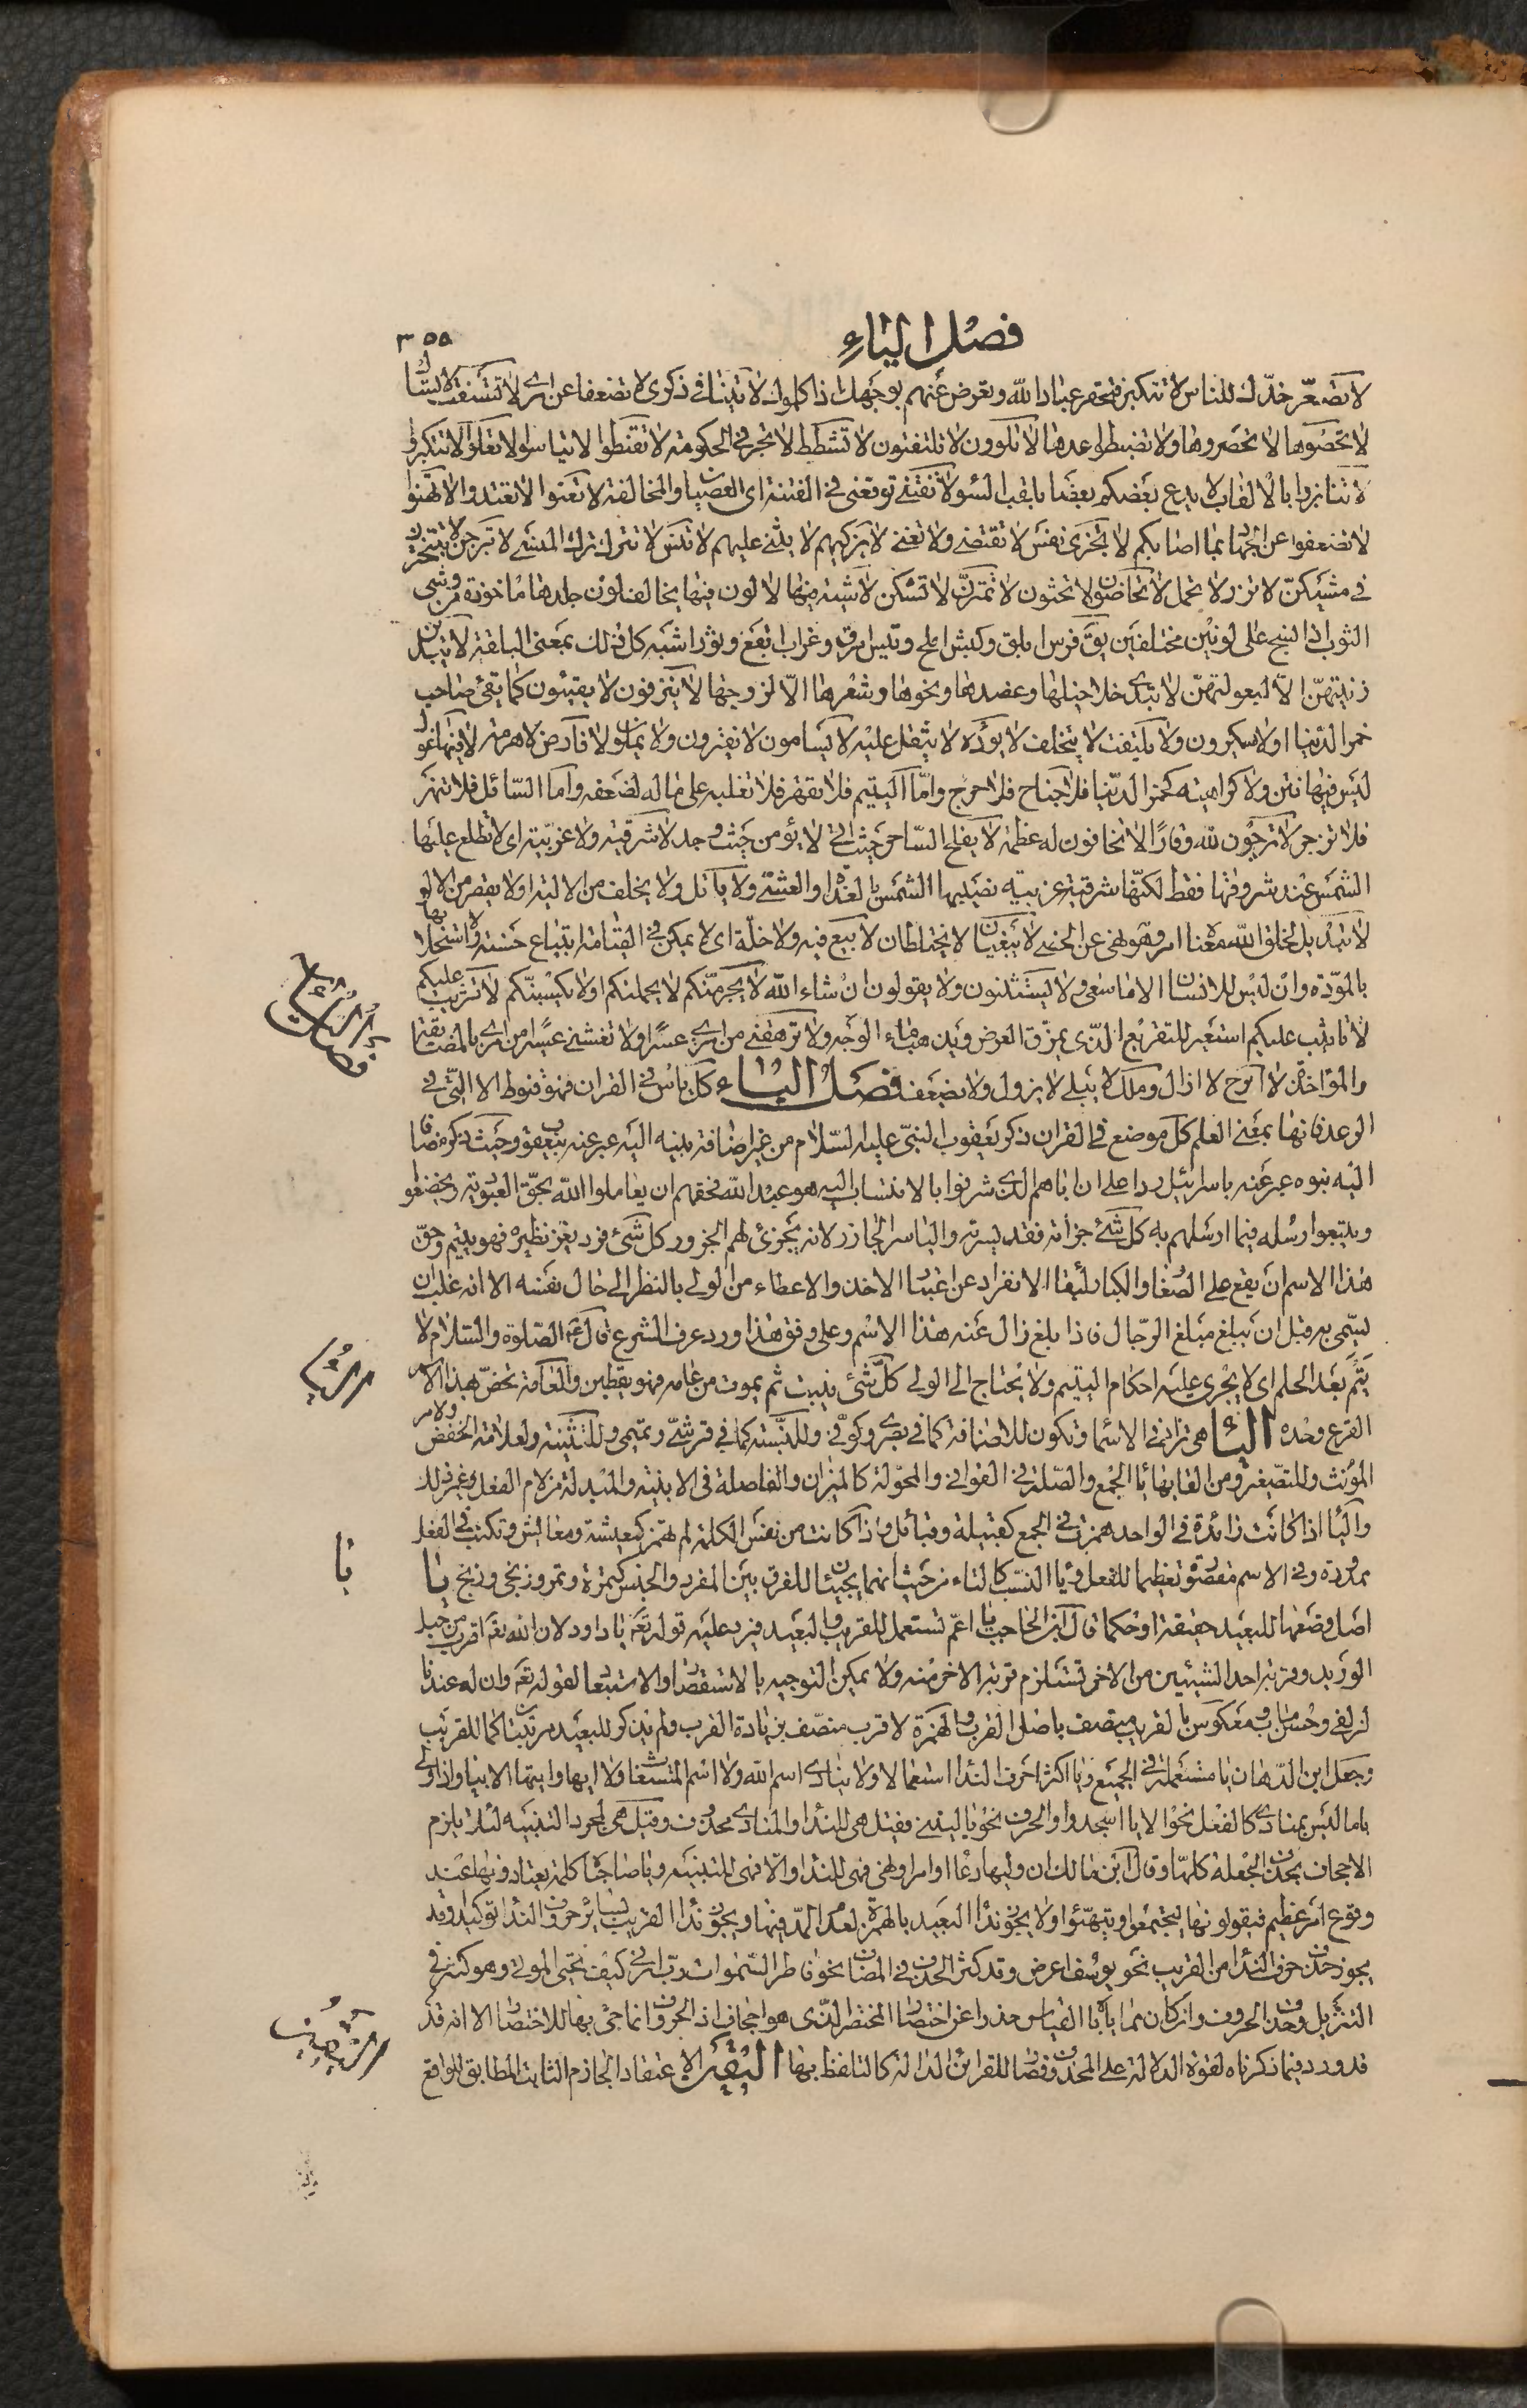 فصل الياء
٣٥٥
لا تصعّر خدّك للناس لا تتكبر فتحقر عباد الله وتعرض عنهم بوجهك اذا كلموك لا تنيا في ذكري لا تضعفا عن امري لا تسفت لا تسأل
لا تحصوها لا تحصروها ولا تضبطوا عددها لا تلوون لا تلتفتون لا تشطط لا تجر في الحكومة لا تقنطوا لا تياسوا لا تغلوا لا تتكبروا
لا تنابزوا بالالقاب لا يدع بعضكم بعضا بلقب السوء لا تفتني توقعني في الفتنة اى العصيان والمخالفة لا تعثوا لا تعتدوا لا تهنوا
لا تضعفوا عن الجهاد بما اصابكم لا تجزى نفس لا تقتضي ولا تغني لا يزكيهم لا يثني عليهم لا تنس لا تترك ترك المنسي لا تبرجن لا تبخترن
في مشيكنّ لا تزر لا تحمل لا تحاضون لا تحثون لا تمترنّ لا تشكن لا شية فيها لا لون فيها يخالف لون جلدها ماخوذة من وشى
الثوب اذا نسج على لونين مختلفين يقّ فرس ابلق وكبش املح وتيس ابرق وغراب ابقع وثور اشيه كل ذلك بمعنى البلقة لا يبدين
زينتهنّ الّا لبعولتهنّ لا تبدى خلاخيلها وعضدها ونحوها وشعرها الّا لزوجها لا ينزفون لا يقيئون كما يقئ صاحب
خمر الدنيا او لا يسكرون ولا يلتفت لا يتخلف لا يؤده لا يثقل عليه لا يسامون لا يفترون ولا يملون لا فارض لا هرمة لا فيها غول
ليس فيها نتن ولا كراهية كخمر الدنيا فلا جناح فلا حرج وامّا اليتيم فلا تقهر فلا تغلبه على ماله لضعفه واما السائل فلا تنهر
فلا تزجر لا ترجون لله وقارًا لا تخافون له عظمة لا يفلح الساحر حيث اتى لا يؤمن حيث وجد لا شرقية ولا غربية اى لا تطلع عليها
الشمس عند شروقها فقط لكنّها شرقية غربية تصيبها الشمس بالغداة والعشي ولا ياتل ولا يحلف من الالية او لا يقصر من الالو
لا تبديل لخلق الله معناه امر وهو نهى عن الخصي لا يبغيان لا يختلطان لا بيع فيه ولا خلّة اى لا يمكن في القيامة ابتياع حسنة ولا استجلابها
بالمودّة وان ليس للانسان الا ما سعى ولا يستثنون ولا يقولون ان شاء الله لا يجرمنّكم لا يحملنكم او لا يكسبنّكم لا تثريب عليكم
لا تانيب عليكم استعير للتقريع الّذى يمزّق العرض ويذهب ماء الوجه ولا ترهقني من امرى عسرًا ولا تغشني عسرا من امرى بالمضايقة
والمؤاخذة لا ابرح لا ازال وملك لا يبلى لا يزول ولا يضعف فصل الياء كل ياس في القران فهو قنوط الا التى في
الرعد فانها بمعنى العلم كل موضع في القران ذكر يعقوب النبيّ عليه السّلام من غير اضافة بنيه اليه عبر عنه بيعقوب وحيث ذكر مضافا
اليه بنوه عبر عنه باسرائيل ردا على ان اباهم الذى شرفوا بالانتساب اليه هو عبد الله فحقهم ان يعاملوا الله بحقّ العبودية ويخضعوا
ويتبعوا رسله فيما ارسلهم به كل شئ جزأته فقد يسرته والياسر الجازر لانه يجزئ لحم الجزور كل شئ فرد يعز نظيره فهو يتيم وحق
هذا الاسم ان يقع على الصغار والكبار لبقاء الانفراد عن اعتبار الاخذ والاعطاء من الولي بالنظر الى حال نفسه الا انه غلب ان
يسمى به قبل ان يبلغ مبلغ الرّجال فاذا بلغ زال عنه هذا الاسم وعلى وفق هذا ورد عرف الشرع قال عليه الصلوة والسلام لا
يتم بعد الحلم اى لا يجرى عليه احكام اليتيم ولا يحتاج الى الولي كلّ شئ ينبت ثم يموت من عامه فهو يقطين والعامة تخصّ بهذا الاسم
القرع وحده الياء هى تزاد في الاسماء وتكون للاضافة كما في بصرى وكوفي وللنسبة كما في قرشيّ وتميمي وللتثنية ولعلامة الخفض ولامر
المؤنث وللتصغير ومن القابها ياء الجمع والصلة في القوافي والمحوّلة كالميزان والفاصلة في الابنية والمبدلة من لام الفعل وغير ذلك
والياء اذا كانت زائدة في الواحد همزت في الجمع كقبيلة وقبائل واذا كانت من نفس الكلمة لم تهمز كمعيشة ومعايش وتكتب في الفعل
ممدودة وفي الاسم مقصورة تعظيما للفعل وياء النسب كالتاء من حيث انهما يجيئان للفرق بين المفرد والجنس كتمرة وتمر وزنجى وزنج يا
اصل وضعها للبعيد حقيقة او حكما قال ابن الحاجب يا اعمّ تستعمل للقريب والبعيد فيرد عليه قوله تعالى يا داود لان الله تعالى اقرب من حبل
الوريد وقربة احد الشيئين من الاخر تستلزم قربة الاخر منه ولا يمكن التوجيه بالاستقصار والاستبعاد لقوله تعالى وان له عندنا
لزلفى وحسن ماب ومعكوس بالقريب متصف باصل القرب والهمزة لا قرب متصف بزيادة القرب ولم يذكر للبعيد مرتبتان كما للقريب
وجعل ابن الدهان يا مستعملة في الجميع ويا اكثر احرف النداء استعمالا ولا ينادى اسم الله ولا اسم المستغاث ولا ايها وايتها الا بيا واذا ولى
يا ما ليس بمنادى كالفعل نحو الا يا اسجدوا والحرف نحو يا ليتني فقيل هى للنداء والمنادى محذوف وقيل هى لمجرد التنبيه لئلا يلزم
الاجحاف بحذف الجملة كلهّا وقال ابن مالك ان وليها دعاء او امر او نهى فهى للنداء والّا فهى للتنبيه ويا صباحا كلمة يعتادونها عند
وقوع امر عظيم فيقولونها ليجتمعوا ويتهيّئوا ولا يجوز نداء البعيد بالهمزة لعدم المدّ فيها ويجوز نداء القريب بسائر حروف النداء توكيدا وقد
يجوز حذف حرف النداء من القريب نحو يوسف اعرض وقد كثر الحذف في المضاف نحو فاطر السموات رب ارني كيف تحيى الموتى وهو كثير في
التنزيل وحذف الحروف وان كان مما ياباه القياس حذرا عن اختصار المختصر الّذى هو اجحاف اذ الحروف انما جئ بها للاختصار الا انه قد
قد ورد فيما ذكرناه لقوة الدلالة على المحذوف فصار القرائن الدالة كالتلفظ بها اليقين الاعتقاد الجازم الثابت المطابق للواقع
فصل الياء
الياء
يا
اليقين